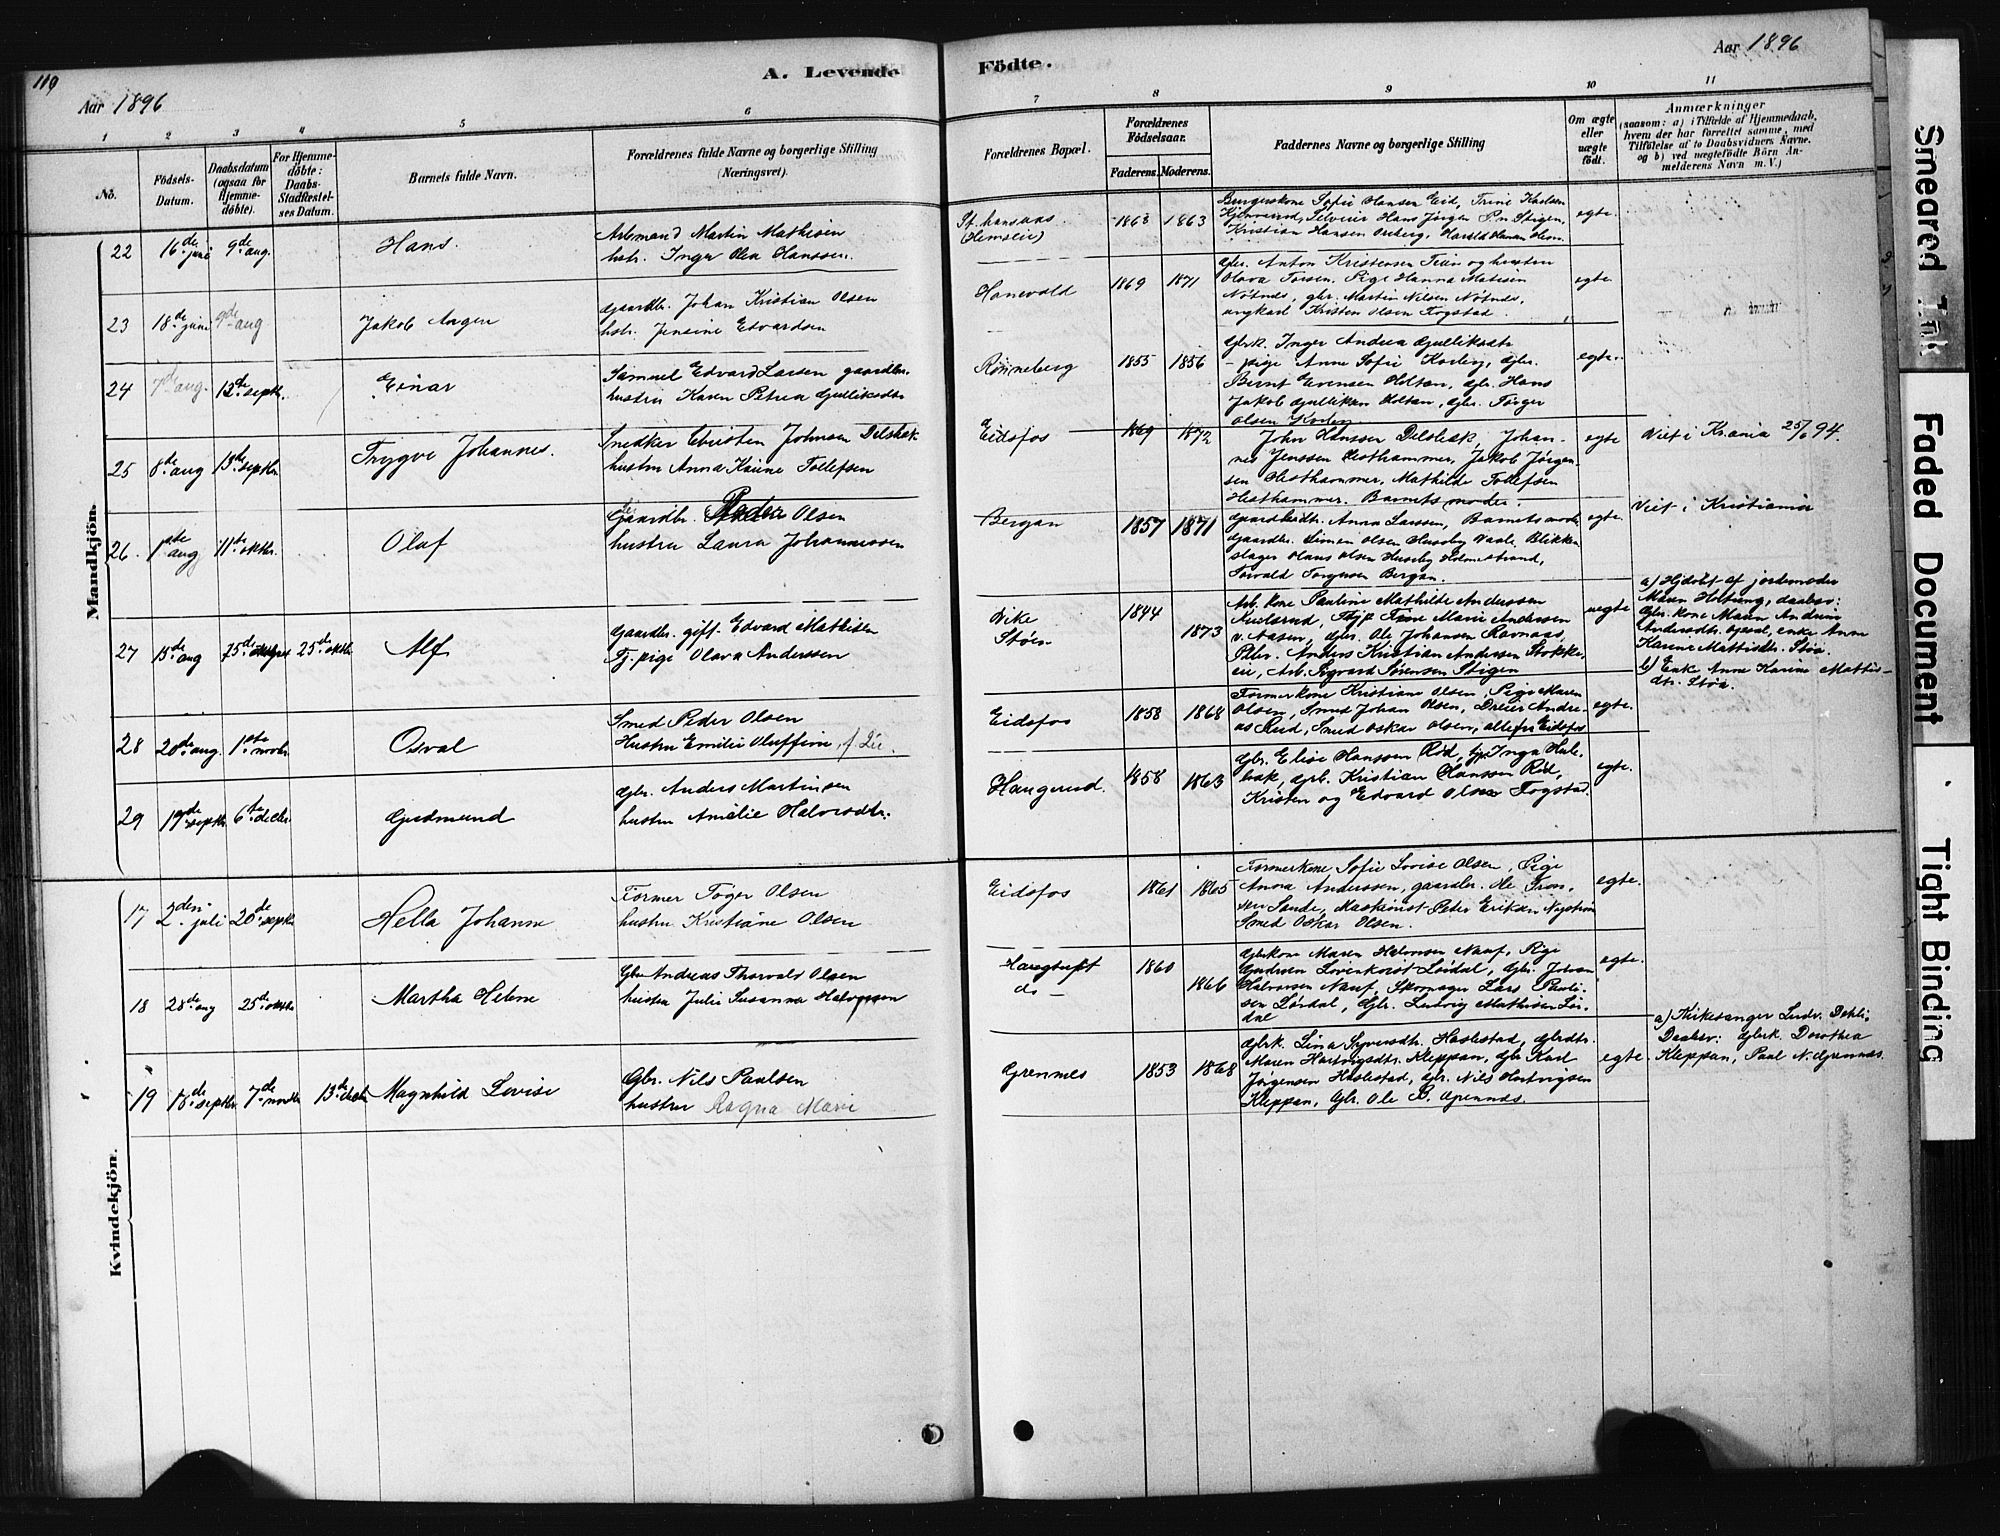 119
A. Levende Födte.
Aar 1896
Aar 1896
1 2 3 4 5 6 7 8 9 10 11
No.
Födsels-Datum.
Daabsdatum (ogsaa for Hjemmedöbte).
For Hjemmedöbte: Daabs-Stadfæstelses Datum.
Barnets fulde Navn.
Forældrenes fulde Navne og borgerlige Stilling
(Næringsvei).
Forældrenes Bopæl.
Forældrenes Födselsaar.
Faderens. Moderens.
Faddernes Navne og borgerlige Stilling
Om ægte eller uægte født.
Anmærkninger
(saasom: a) i Tilfælde af Hjemmedaab,
hvem der har forrettet samme, med
Tilföielse af to Daabsvidners Navne,
og b) ved uægtefödte Börn Anmelderens Navn m. V.)
Mandkjön.
22 16de juni 9de aug. Hans.
Arbmand Martin Mathisen
hstr. Inger Olea Hanssen.
St. hansaas
(Hemseie)
1863 1863
Bergerskone Sofie Hansen Eid, Trine Karlsen
Kristian Hansen
egte.
23 18de juni 9de aug Jakob Aagen
Gaardbr. Johan Kristian Olsen
hstr. Jensine Edvardsen
Hanevold
1869 1871
Gbr. Anton Kristensen Teien og hustru
Olava Torsen, Pige Hanna Matisen
Nötnes, gbr. Martin Nilsen Nötnes,
ungkarl Kristen Olsen Fogstad.
egte.
24 7de aug. 13de septb. Einar
Samuel Edvard Larsen gaardbr.
hustru Karen Petrea Gulliksdtr
Rönneberg
1855 1856
Gbrk. Inger Andrea Gulliksdtr
- pige Anne Sofie Korberg, Gbr.
Bernt Evensen Holtan, Gbr. Hans
Jakob Gulliksen Holtan, Gbr. Törger
Olsen
egte.
25 8de aug 13de septbr. Trygve Johannes.
Snedker Christen Johnsen Delsbæk
hustru Anna Karine Tollefsen
Eidsfos
1869 1872
John Hanssen Delsbæk, Johannes
Jenssen Hesthammer, Jakob Jörgensen
Hesthammer, Mathilde Tollefsen
Hesthammer. Barnets moder.
egte
Viet i Kr.ania 25/6 94.
26. 1ste aug 11te oktbr. Olaf
Gaardbr. Peder Olsen
hustru Laura Johannessen
Bergan
1857 1871
Gaardbrdtr. Anna Larssen, Barnets moder
Gaardbr. Simen Olsen Huseby Vaale, Blikkenslager
Hans Olsen Huseby Holmestrand,
Torvald Torgersen Bergan.
egte.
Viet i Kristiania
27 15de aug 25de oktbr. Alf
Gaardbr. gift. Edvard Mathisen
Tj. pige Olava Anderssen
Vike
Stöen
1844
1873
Arb. kone Pauline Mathilde Anderssen
Marie Anderssen
v. Aasen, Gbr. Ole Johansen Ravnaas,
Anders Kristian Andersen Stokkeeie,
Arb. Sigvard Sörensen Stigen
uegte
a) Hjdöbt af jordemoder
Maren Holtung, daabsv:
Gbr. kone Maren Andrine
Andersdtr. Opsal, enke Anne
Karine Mattisdtr. Stöa.
b) Enke Anne Karine Mattisdtr.
Stöa.
28 20de aug. 1ste novbr. Osval
Smed Peder Olsen
Hustru Emilie Oluffine, f. Lie.
Eidsfos
1858 1868
Formerkone Kristiane Olsen, Pige Maren
Olsen, Smed Johan Olsen, Dreier Andreas
Ruid, Smed Oskar Olsen, alle fra Eidsfos
egte.
29 19de septbr 6te decbr. Gudmund
Gbr. Anders Martinsen
hustru Amalie Halvorsdtr.
Haugerud.
1858 1863
Gbr. Elise Hanssen Röd, Inga
Gbr. Kristian Hanssen Röd,
Kristen og Edvard Olsen Fogstad.
egte.
Kvindekjön.
17 2den juli 20de septbr Hella Johanne
Former Töger Olsen
hustru Kristiane Olsen
Eidsfos
1861 1865
Formerkone Sofie Lovise Olsen, Pige
Anna Anderssen, gaardbr. Ole
Sande, Maskinist Peder Eriksen Nyström
Smed Oskar Olsen.
egte.
18 28de aug 25de oktbr Martha Helene
Gbr Andreas Thorvald Olsen
hustru Julie Susanna Halvorssen
do -
1860
1866
Gbrkone Maren Halvorsen Nauf, Pige
Gudrun Lovenkorst Lördal, Gbr. Johan
Halvorsen Nauf, Skomager Lars Paulisen
Lördal, Gbr. Ludvig Mathisen Lördal
egte.
19 18de septbr 7de novbr 13de decbr Magnhild Lovise
Gbr. Nils Paulsen
hustru Ragna Marie
Grennes
1853 1868
Gbrk. Lina Syversdtr. Haslestad, gbrdtr.
Maren Hartvigsdtr. Kleppan, Gbr Karl
Jörgensen Haslestad, Gbr. Nils Hartvigsen
Kleppan, Gbr. Ole B. Grennes.
egte
a) Kirkesanger Ludv. Dehli.
Daabsv: Gbrk. Dorothea
Kleppan, Paul N. Grennes.
Smeared Ink
Faded Document
Tight Binding